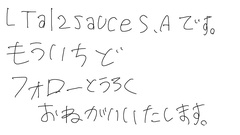 LTal2sauceS.Aです。
もういちど
フォローとうろく
おねがいいたします。